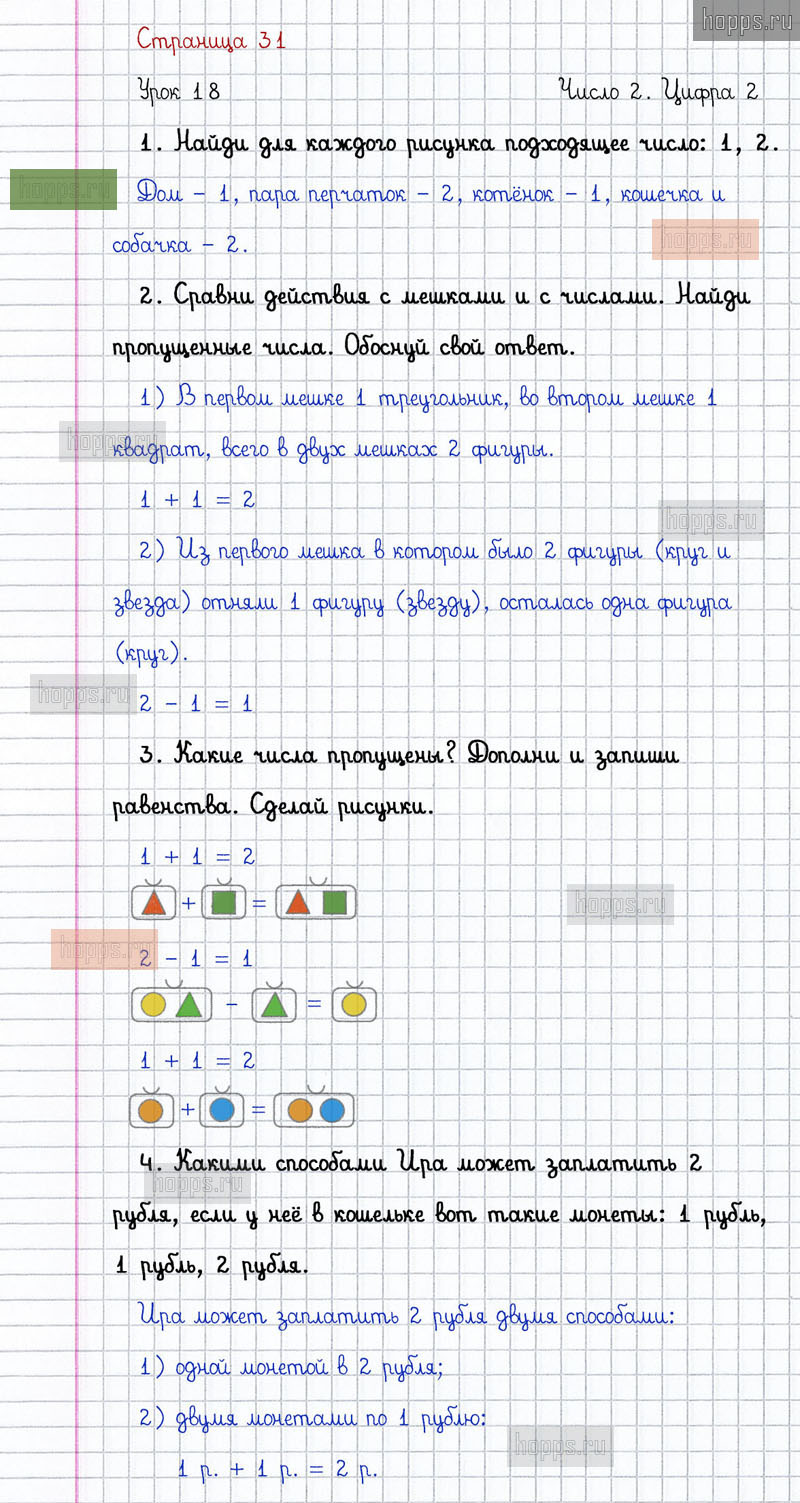 hopps.ru
Страница 31
Урок 18 Число 2. Цифра 2
1. Найди для каждого рисунка подходящее число: 1, 2.
hopps.ru
Дом - 1, пара перчаток - 2, котёнок - 1, кошечка и
hopps.ru
собачка - 2.
2. Сравни действия с мешками и с числами. Найди
пропущенные числа. Обоснуй свой ответ.
1) В первом мешке 1 треугольник, во втором мешке 1
hopps.ru
квадрат, всего в двух мешках 2 фигуры.
1 + 1 = 2
hopps.ru
2) Из первого мешка в котором было 2 фигуры (круг и
звезда) отняли 1 фигуру (звезду), осталась одна фигура
(круг).
hopps.ru
2 - 1 = 1
3. Какие числа пропущены? Дополни и запиши
равенства. Сделай рисунки.
1 + 1 = 2
+ =
hopps.ru
hopps.ru
2 - 1 = 1
- =
1 + 1 = 2
+ =
4. Какими способами Ира может заплатить 2
hopps.ru
рубля, если у неё в кошельке вот такие монеты: 1 рубль,
1 рубль, 2 рубля.
Ира может заплатить 2 рубля двумя способами:
1) одной монетой в 2 рубля;
2) двумя монетами по 1 рублю:
hopps.ru
1 р. + 1 р. = 2 р.